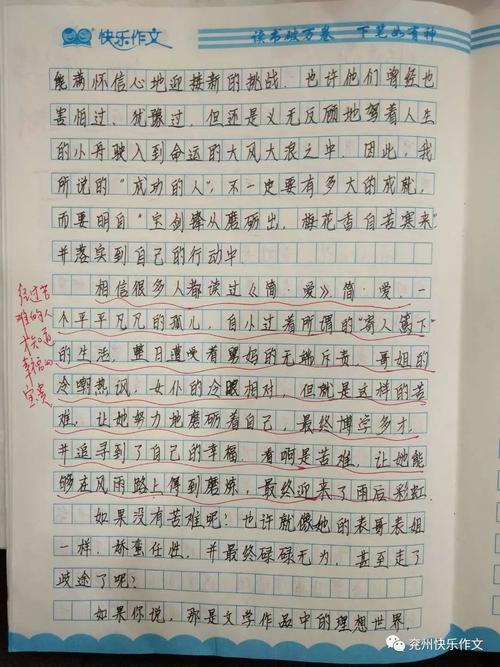 快乐作文
读书破万卷 下笔如有神
能满怀信心地迎接新的挑战。也许他们曾经也
害怕过、犹豫过，但还是义无反顾地驾着人生
的小舟驶入到命运的大风大浪之中。因此，我
所说的“成功的人”，不一定要有多大的成就，
而要明白“宝剑锋从磨砺出，梅花香自苦寒来”
并落实到自己的行动中。
相信很多人都读过《简·爱》，简·爱，一
个平平凡凡的孤儿，自小过着所谓的“寄人篱下”
的生活，整日遭受着舅妈的无端斥责，哥姐的
冷嘲热讽，女仆的冷眼相对，但就是这样的苦
难，让她努力地磨砺着自己，最终博学多才，
并追寻到了自己的幸福。看啊是苦难，让她能
够在风雨路上得到磨炼，最终迎来了雨后彩虹。
如果没有苦难呢？也许就像她的表哥表姐
一样，娇蛮任性，并最终碌碌无为，甚至走了
歧途了呢？
如果你说，那是文学作品中的理想世界，
经过苦
难的人
才知道
幸福的
宝贵
兖州快乐作文